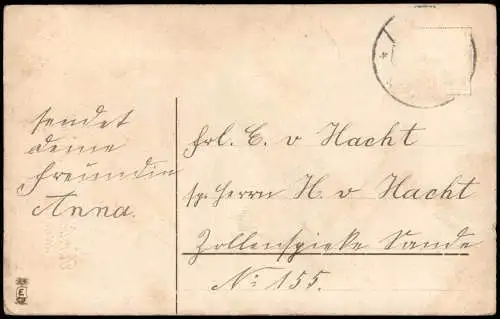 sendet
deine
Freundin
Anna.
Frl. C. v Hacht
sp. Herrn H. v Hacht
Zollenspieke Sande
No: 155.
E